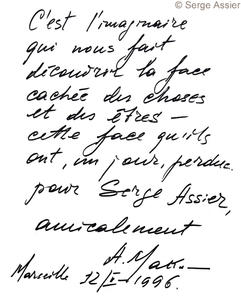 © Serge Assier
C'est l'imaginaire
qui nous fait
découvrir la face
cachée des choses
et des êtres —
cette face qu'ils
ont, un jour, perdue.
pour Serge Assier,
amicalement
Marseille 12/I–1996.